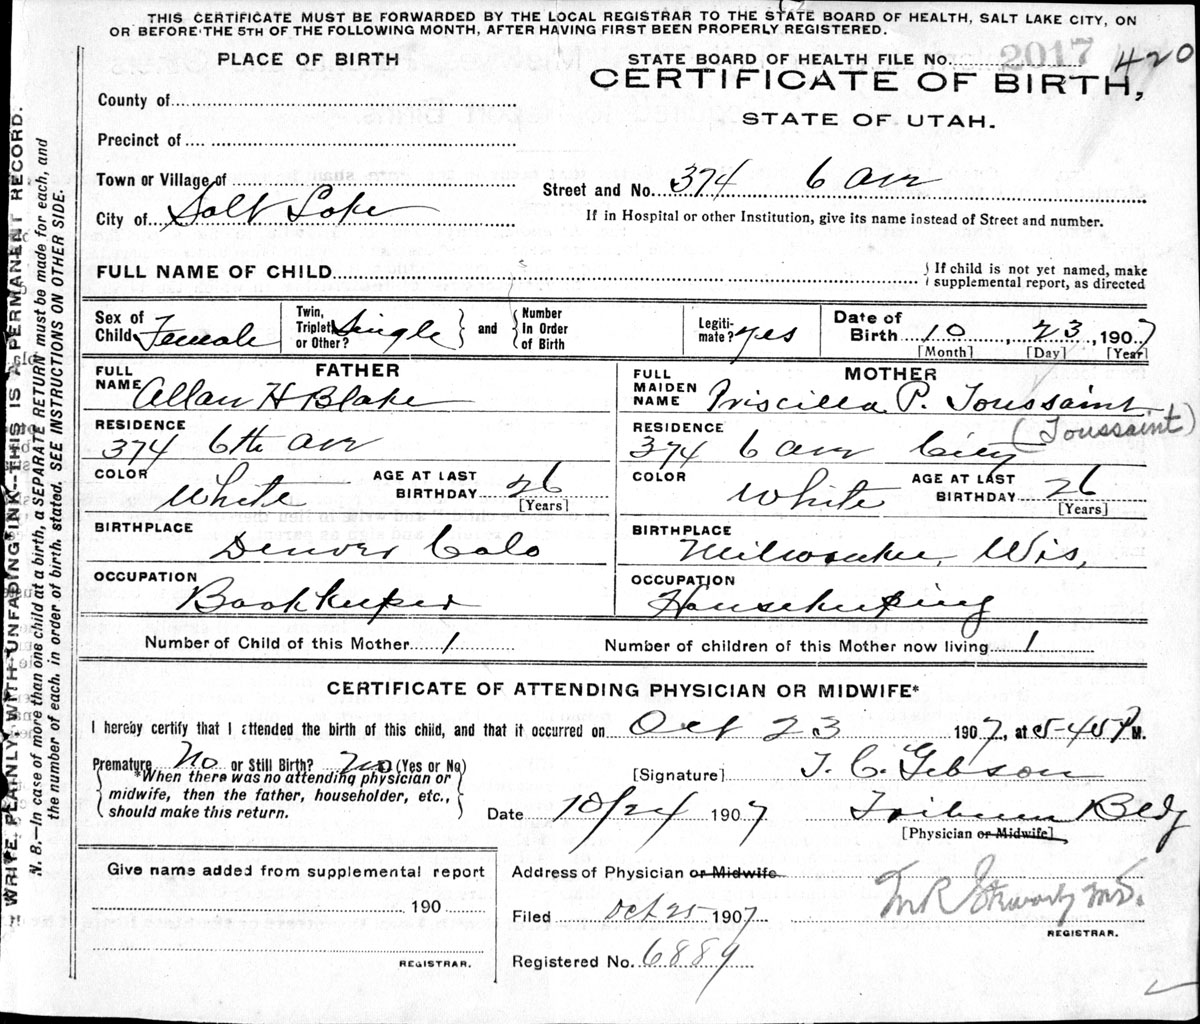 THIS CERTIFICATE MUST BE FORWARDED BY THE LOCAL REGISTRAR TO THE STATE BOARD OF HEALTH, SALT LAKE CITY, ON
OR BEFORE THE 5TH OF THE FOLLOWING MONTH, AFTER HAVING FIRST BEEN PROPERLY REGISTERED.
PLACE OF BIRTH
STATE BOARD OF HEALTH FILE No. 2017 420
CERTIFICATE OF BIRTH,
STATE OF UTAH.
County of
Precinct of
Town or Village of
Street and No. 374 6 Ave
City of Salt Lake
If in Hospital or other Institution, give its name instead of Street and number.
FULL NAME OF CHILD
If child is not yet named, make
supplemental report, as directed
Sex of Child Female
Twin, Triplet or Other? Single
and
Number In Order of Birth
Legitimate? yes
Date of Birth 10, 23, 1907
[Month] [Day] [Year]
FATHER
FULL NAME Allan H Blake
RESIDENCE
374 6th Ave
COLOR White
AGE AT LAST BIRTHDAY 26 [Years]
BIRTHPLACE
Denver Colo
OCCUPATION
Bookkeeper
MOTHER
FULL MAIDEN NAME Priscilla P. Toussaint
(Toussaint)
RESIDENCE
374 6 Ave City
COLOR White
AGE AT LAST BIRTHDAY 26 [Years]
BIRTHPLACE
Milwaukee, Wis,
OCCUPATION
Housekeeping
Number of Child of this Mother 1
Number of children of this Mother now living 1
CERTIFICATE OF ATTENDING PHYSICIAN OR MIDWIFE*
I hereby certify that I attended the birth of this child, and that it occurred on Oct 23 1907, at 5-40 P M.
Premature No or Still Birth? No (Yes or No)
*When there was no attending physician or
midwife, then the father, householder, etc.,
should make this return.
[Signature] T. C. Gibson
Date 10/24 1907 Tribune Bldg
[Physician or Midwife]
Give name added from supplemental report
190
REGISTRAR.
Address of Physician or Midwife
Filed Oct 25 1907
M.D.
REGISTRAR.
Registered No. 6889
WRITE PLAINLY WITH UNFADING INK—THIS IS A PERMANENT RECORD.
N. B.—In case of more than one child at a birth, a SEPARATE RETURN must be made for each, and
the number of each, in order of birth, stated. SEE INSTRUCTIONS ON OTHER SIDE.